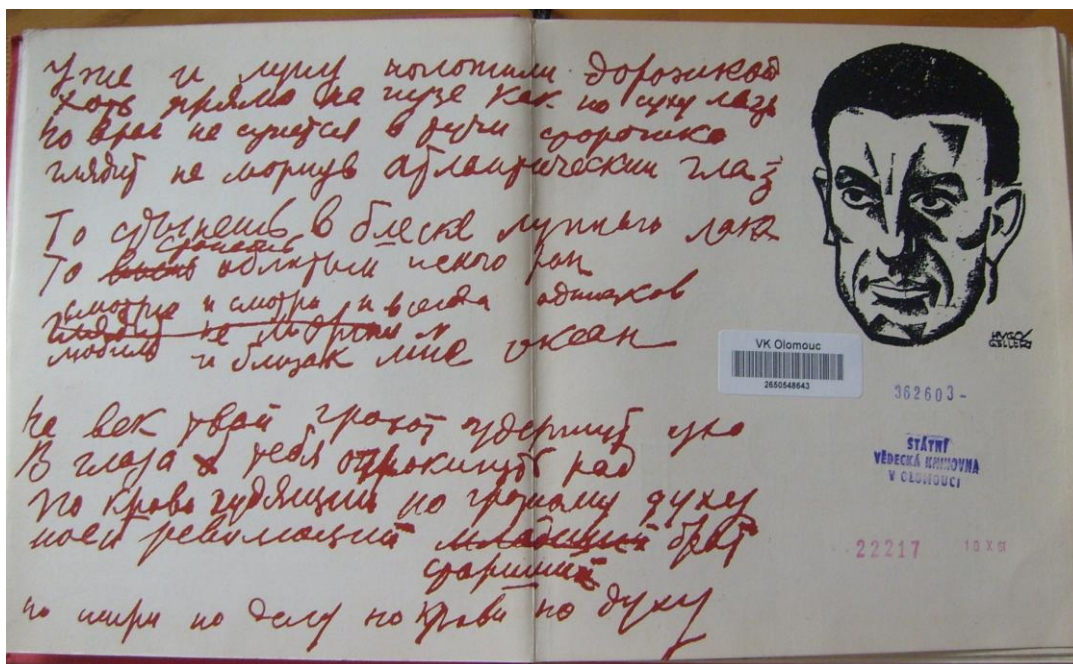 Уже и луну положили дорожкой
хоть прямо на пузе как по суху лазь
но враг не сунется в сторожко
глядит не моргнув атлантический глаз
То стынешь в блеске лунного лака
стонешь
То облитый пеною ран
смотрю и смотрю и всегда одинаков
глядит не моргнув
любим и близок мне океан
На век твой грохот удержит ухо
В глаза тебя опрокинуть рад
По крови гудящий по духу
моей революций младший брат
старший
по шири по делу по крови по духу
HUGO
GELLERT
VK Olomouc
2650548643
362603-
STÁTNÍ
VĚDECKÁ KNIHOVNA
V OLOMOUCI
22217